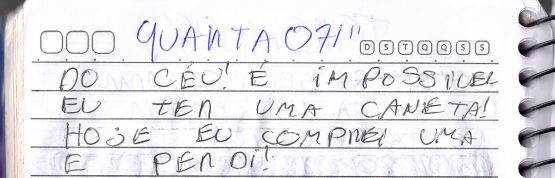 QUANTA 07!" D S T Q Q S S
DO CÉU! É IMPOSSIVEL
EU TER UMA CANETA!
HOJE EU COMPREI UMA
E PERDI!